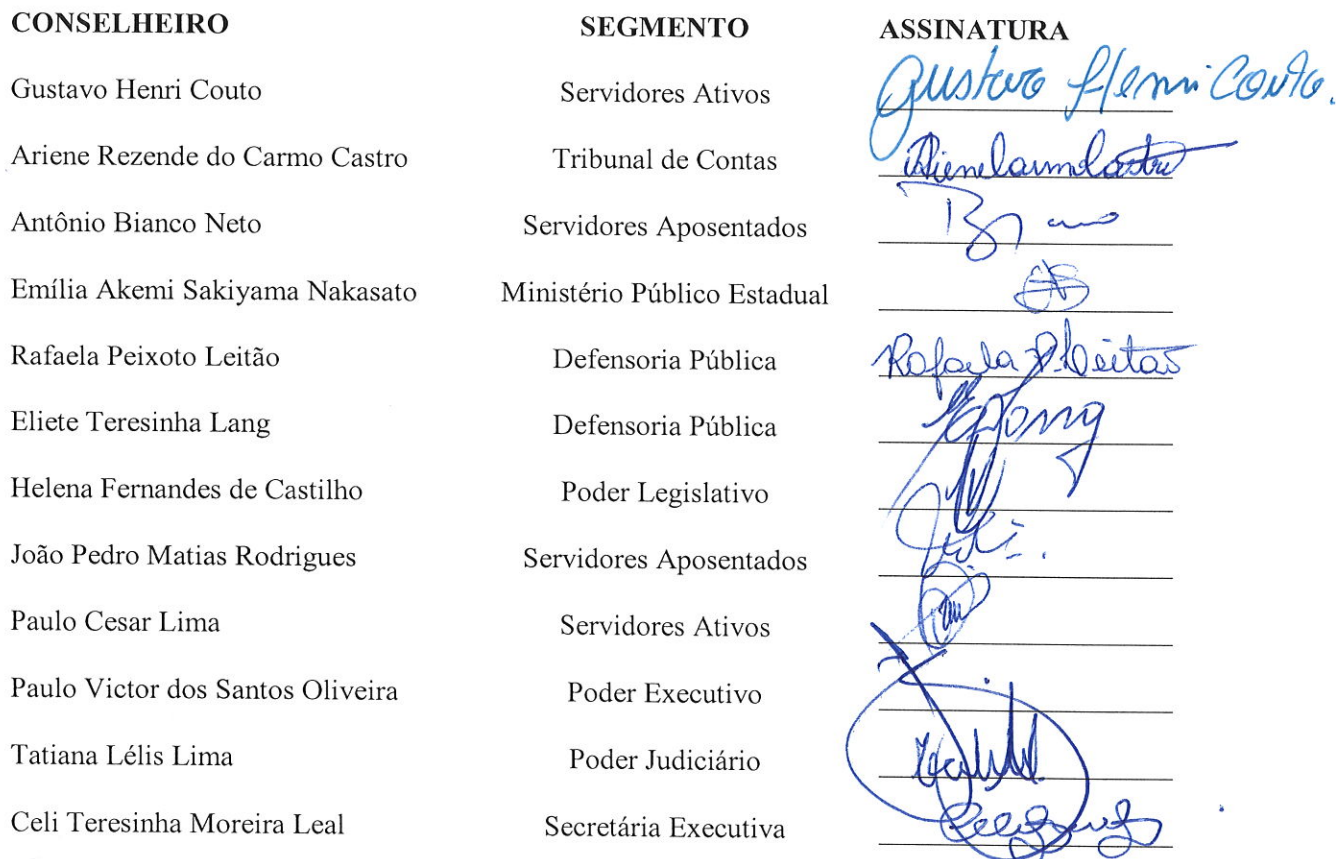 CONSELHEIRO SEGMENTO ASSINATURA
Gustavo Henri Couto Servidores Ativos Gustavo Henri Couto.
Ariene Rezende do Carmo Castro Tribunal de Contas
Antônio Bianco Neto Servidores Aposentados
Emília Akemi Sakiyama Nakasato Ministério Público Estadual
Rafaela Peixoto Leitão Defensoria Pública Rafaela P. Leitão
Eliete Teresinha Lang Defensoria Pública
Helena Fernandes de Castilho Poder Legislativo
João Pedro Matias Rodrigues Servidores Aposentados
Paulo Cesar Lima Servidores Ativos
Paulo Victor dos Santos Oliveira Poder Executivo
Tatiana Lélis Lima Poder Judiciário
Celi Teresinha Moreira Leal Secretária Executiva